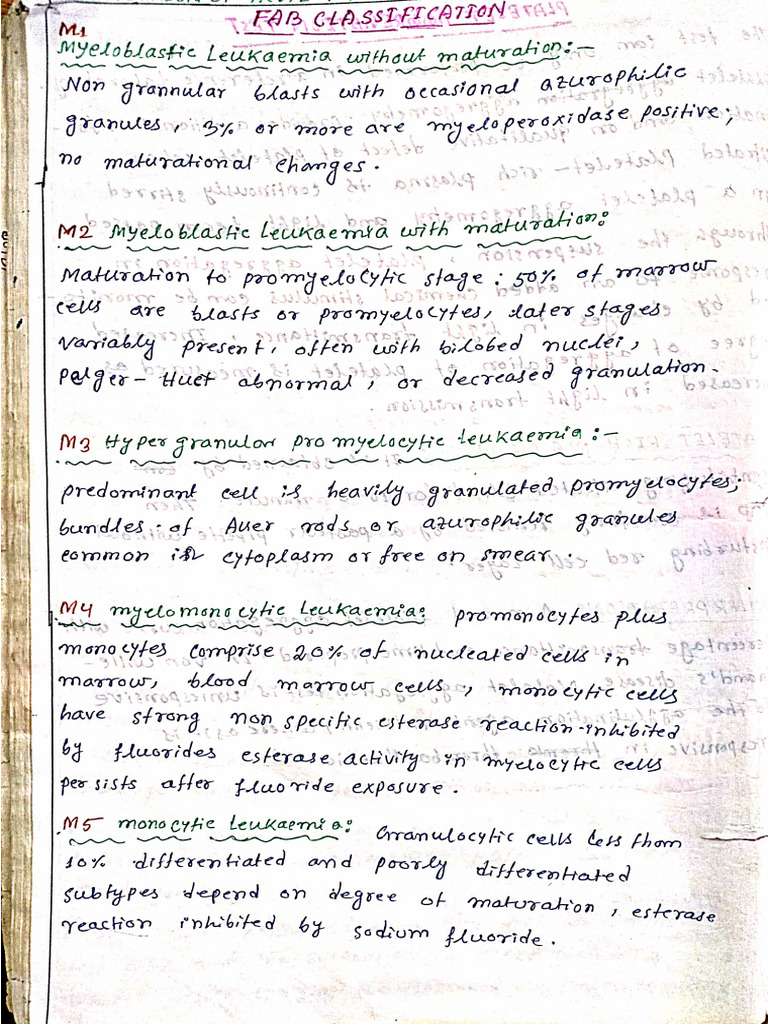 FAB CLASSIFICATION
M1
Myeloblastic Leukaemia without maturation:-
Non grannular blasts with occasional azurophilic
granules, 3% or more are myeloperoxidase positive;
no maturational changes.
M2 Myeloblastic Leukaemia with maturation:
Maturation to promyelocytic stage: 50% of marrow
cells are blasts or promyelocytes, later stages
variably present, often with bilobed nuclei,
pelger-Huet abnormal, or decreased granulation.
M3 Hyper granular promyelocytic leukaemia:-
predominant cell is heavily granulated promyelocytes;
bundles of Auer rods or azurophilic granules
common in cytoplasm or free on smear.
M4 myelomonocytic Leukaemia: promonocytes plus
monocytes comprise 20% of nucleated cells in
marrow, blood marrow cells, monocytic cells
have strong non specific esterase reaction-inhibited
by fluorides esterase activity in myelocytic cells
persists after fluoride exposure.
M5 monocytic Leukaemia: Granulocytic cells less than
10% differentiated and poorly differentiated
subtypes depend on degree of maturation, esterase
reaction inhibited by sodium fluoride.